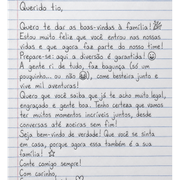 Querido tio,
Quero te dar as boas-vindas à família!
Estou muito feliz que você entrou nas nossas
vidas e que agora faz parte do nosso time!
Prepare-se: aqui a diversão é garantida! 😄
A gente ri de tudo, faz bagunça (só um
pouquinho... ou não 😄), come besteira junto e
vive mil aventuras!
Quero que você saiba que já te acho muito legal,
engraçado e gente boa. Tenho certeza que vamos
ter muitos momentos incríveis juntos, desde
conversas até risadas sem fim!
Seja bem-vindo de verdade! Que você se sinta
em casa, porque agora essa também é a sua
família! ☆
Conte comigo sempre!
Com carinho,